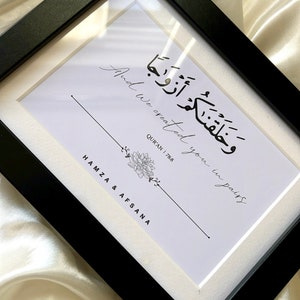 وَخَلَقْنَاكُمْ أَزْوَاجًا
And we created you in pairs
QUR'AN 78:8
HAMZA & AFSANA